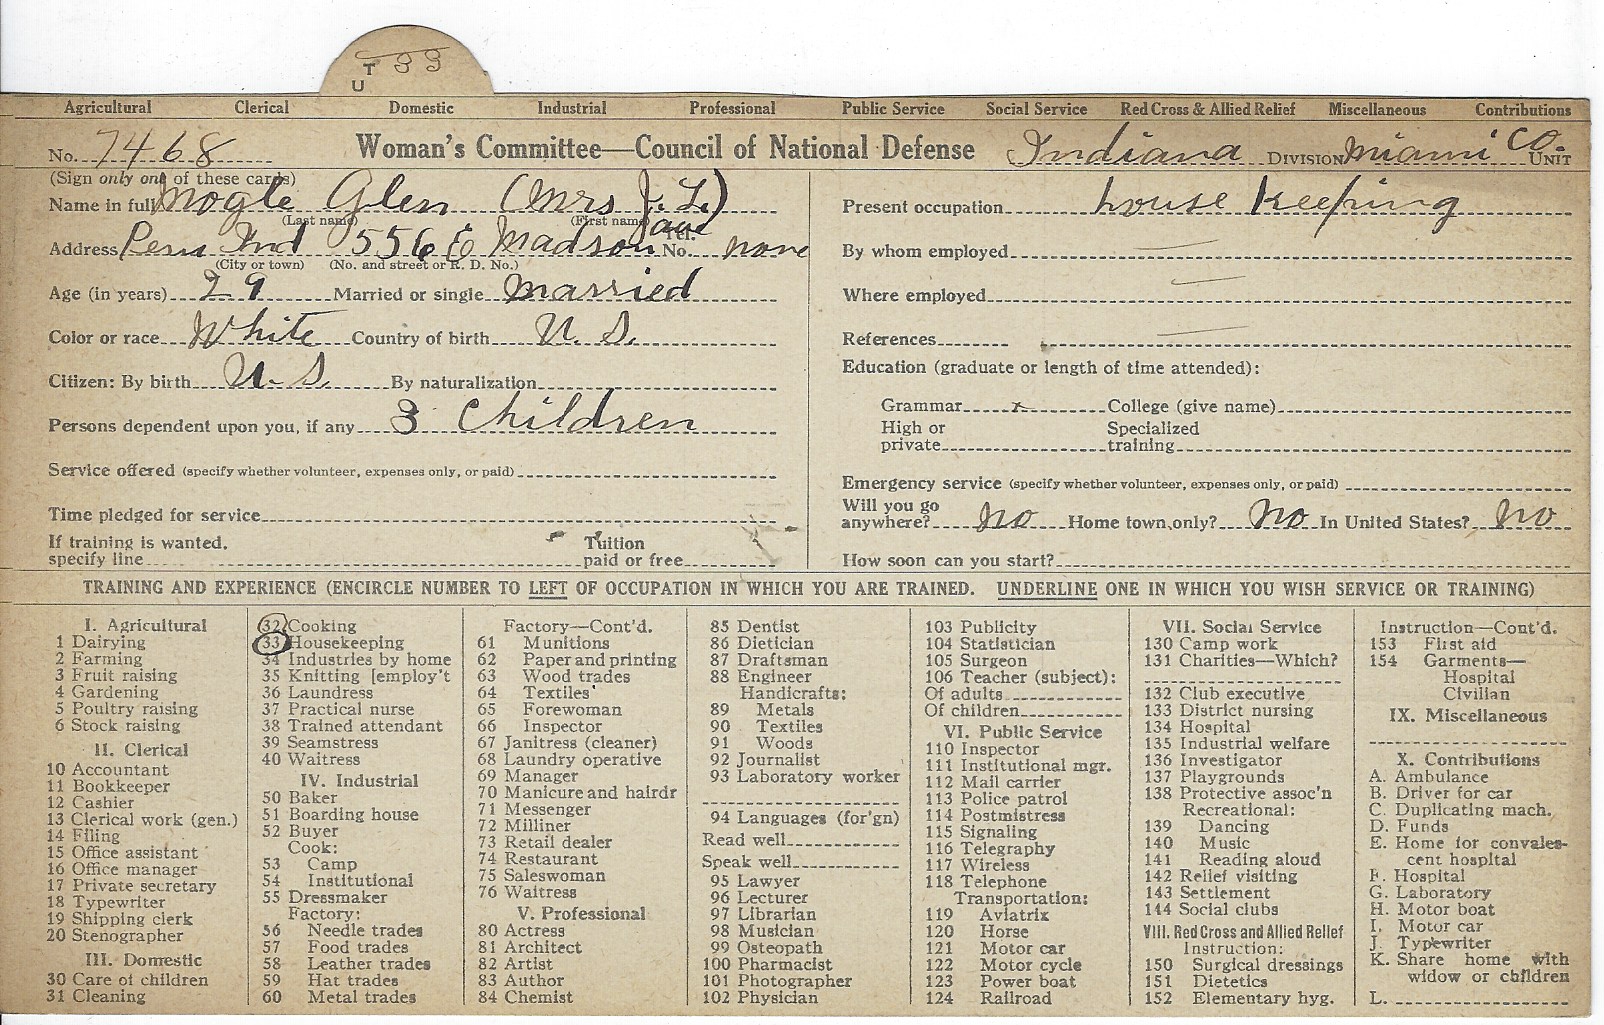 T 33
U
Agricultural Clerical Domestic Industrial Professional Public Service Social Service Red Cross & Allied Relief Miscellaneous Contributions
No. 7468 Woman's Committee—Council of National Defense Indiana DIVISION Miami Co. UNIT
(Sign only one of these cards)
Name in full Mogle Glen (Mrs J. L.)
(Last name) (First name)
Jane
Address Peru Ind 556 E Madson Tel. No. none
(City or town) (No. and street or R. D. No.)
Age (in years) 29 Married or single married
Color or race White Country of birth U. S.
Citizen: By birth U. S. By naturalization
Persons dependent upon you, if any 3 Children
Service offered (specify whether volunteer, expenses only, or paid)
Time pledged for service
If training is wanted, specify line Tuition paid or free
Present occupation house keeping
By whom employed
Where employed
References
Education (graduate or length of time attended):
Grammar x College (give name)
High or private Specialized training
Emergency service (specify whether volunteer, expenses only, or paid)
Will you go anywhere? no Home town only? No In United States? No
How soon can you start?
TRAINING AND EXPERIENCE (ENCIRCLE NUMBER TO LEFT OF OCCUPATION IN WHICH YOU ARE TRAINED. UNDERLINE ONE IN WHICH YOU WISH SERVICE OR TRAINING)
I. Agricultural
1 Dairying
2 Farming
3 Fruit raising
4 Gardening
5 Poultry raising
6 Stock raising
II. Clerical
10 Accountant
11 Bookkeeper
12 Cashier
13 Clerical work (gen.)
14 Filing
15 Office assistant
16 Office manager
17 Private secretary
18 Typewriter
19 Shipping clerk
20 Stenographer
III. Domestic
30 Care of children
31 Cleaning
32 Cooking
33 Housekeeping
34 Industries by home
35 Knitting [employ't
36 Laundress
37 Practical nurse
38 Trained attendant
39 Seamstress
40 Waitress
IV. Industrial
50 Baker
51 Boarding house
52 Buyer
Cook:
53 Camp
54 Institutional
55 Dressmaker
Factory:
56 Needle trades
57 Food trades
58 Leather trades
59 Hat trades
60 Metal trades
Factory—Cont'd.
61 Munitions
62 Paper and printing
63 Wood trades
64 Textiles
65 Forewoman
66 Inspector
67 Janitress (cleaner)
68 Laundry operative
69 Manager
70 Manicure and hairdr
71 Messenger
72 Milliner
73 Retail dealer
74 Restaurant
75 Saleswoman
76 Waitress
V. Professional
80 Actress
81 Architect
82 Artist
83 Author
84 Chemist
85 Dentist
86 Dietician
87 Draftsman
88 Engineer
Handicrafts:
89 Metals
90 Textiles
91 Woods
92 Journalist
93 Laboratory worker
94 Languages (for'gn)
Read well
Speak well
95 Lawyer
96 Lecturer
97 Librarian
98 Musician
99 Osteopath
100 Pharmacist
101 Photographer
102 Physician
103 Publicity
104 Statistician
105 Surgeon
106 Teacher (subject):
Of adults
Of children
VI. Public Service
110 Inspector
111 Institutional mgr.
112 Mail carrier
113 Police patrol
114 Postmistress
115 Signaling
116 Telegraphy
117 Wireless
118 Telephone
Transportation:
119 Aviatrix
120 Horse
121 Motor car
122 Motor cycle
123 Power boat
124 Railroad
VII. Social Service
130 Camp work
131 Charities—Which?
132 Club executive
133 District nursing
134 Hospital
135 Industrial welfare
136 Investigator
137 Playgrounds
138 Protective assoc'n
Recreational:
139 Dancing
140 Music
141 Reading aloud
142 Relief visiting
143 Settlement
144 Social clubs
VIII. Red Cross and Allied Relief
Instruction:
150 Surgical dressings
151 Dietetics
152 Elementary hyg.
Instruction—Cont'd.
153 First aid
154 Garments—
Hospital
Civilian
IX. Miscellaneous
X. Contributions
A. Ambulance
B. Driver for car
C. Duplicating mach.
D. Funds
E. Home for convales-
cent hospital
F. Hospital
G. Laboratory
H. Motor boat
I. Motor car
J. Typewriter
K. Share home with
widow or children
L.